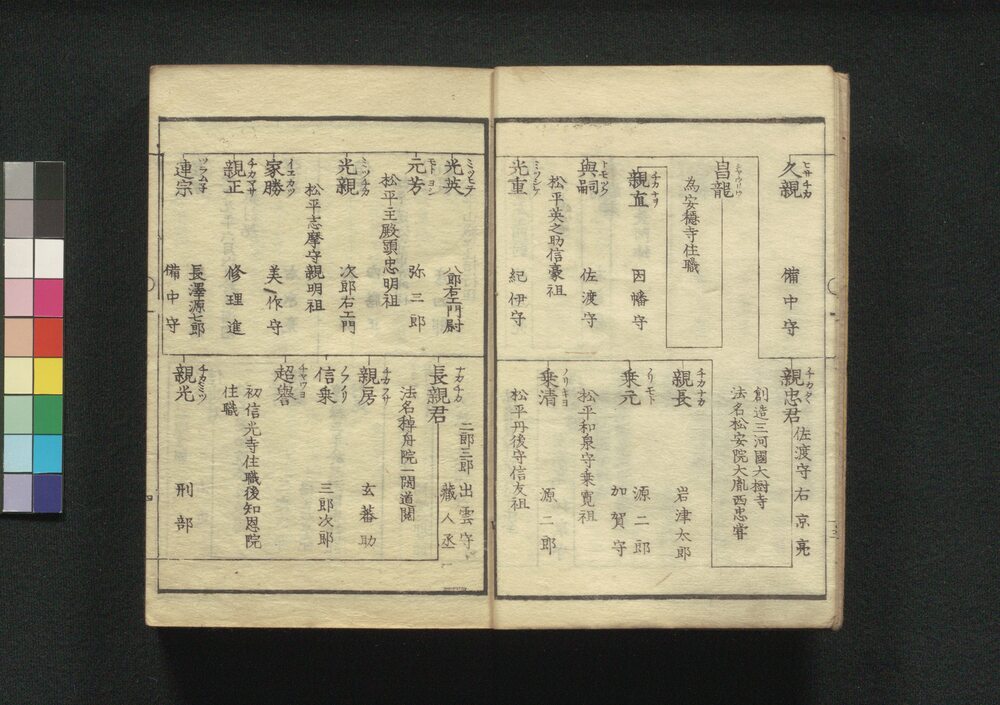 久親 ヒサチカ 備中守
昌龍 シヤウリウ
為安穏寺住職
親直 チカナヲ 因幡守
與嗣 トモツク 佐渡守
松平英之助信豪祖
光重 ミツシケ 紀伊守
親忠君 チカタヽ 佐渡守 右京亮
創造三河國大樹寺
法名松安院大胤西忠
親長 チカナカ 岩津太郎
乗元 ノリモト 源二郎
加賀守
松平和泉守乗寛祖
乗清 ノリキヨ 源二郎
松平丹後守信友祖
光英 ミツヒテ 八郎右エ門尉
元芳 モトヨシ 弥三郎
松平主殿頭忠明祖
光親 ミツチカ 次郎右エ門
松平志摩守親明祖
家勝 イエカツ 美作守
親正 チカマサ 修理進
連宗 ツラムネ 長澤源七郎
備中守
長親君 ナカチカ 二郎三郎 出雲守
藏人丞
法名棹舟院一閑道閲
親房 チカフサ 玄蕃助
信乗 ノフノリ 三郎次郎
超譽 チヤウヨ
初信光寺住職後知恩院
住職
親光 チカミツ 刑部